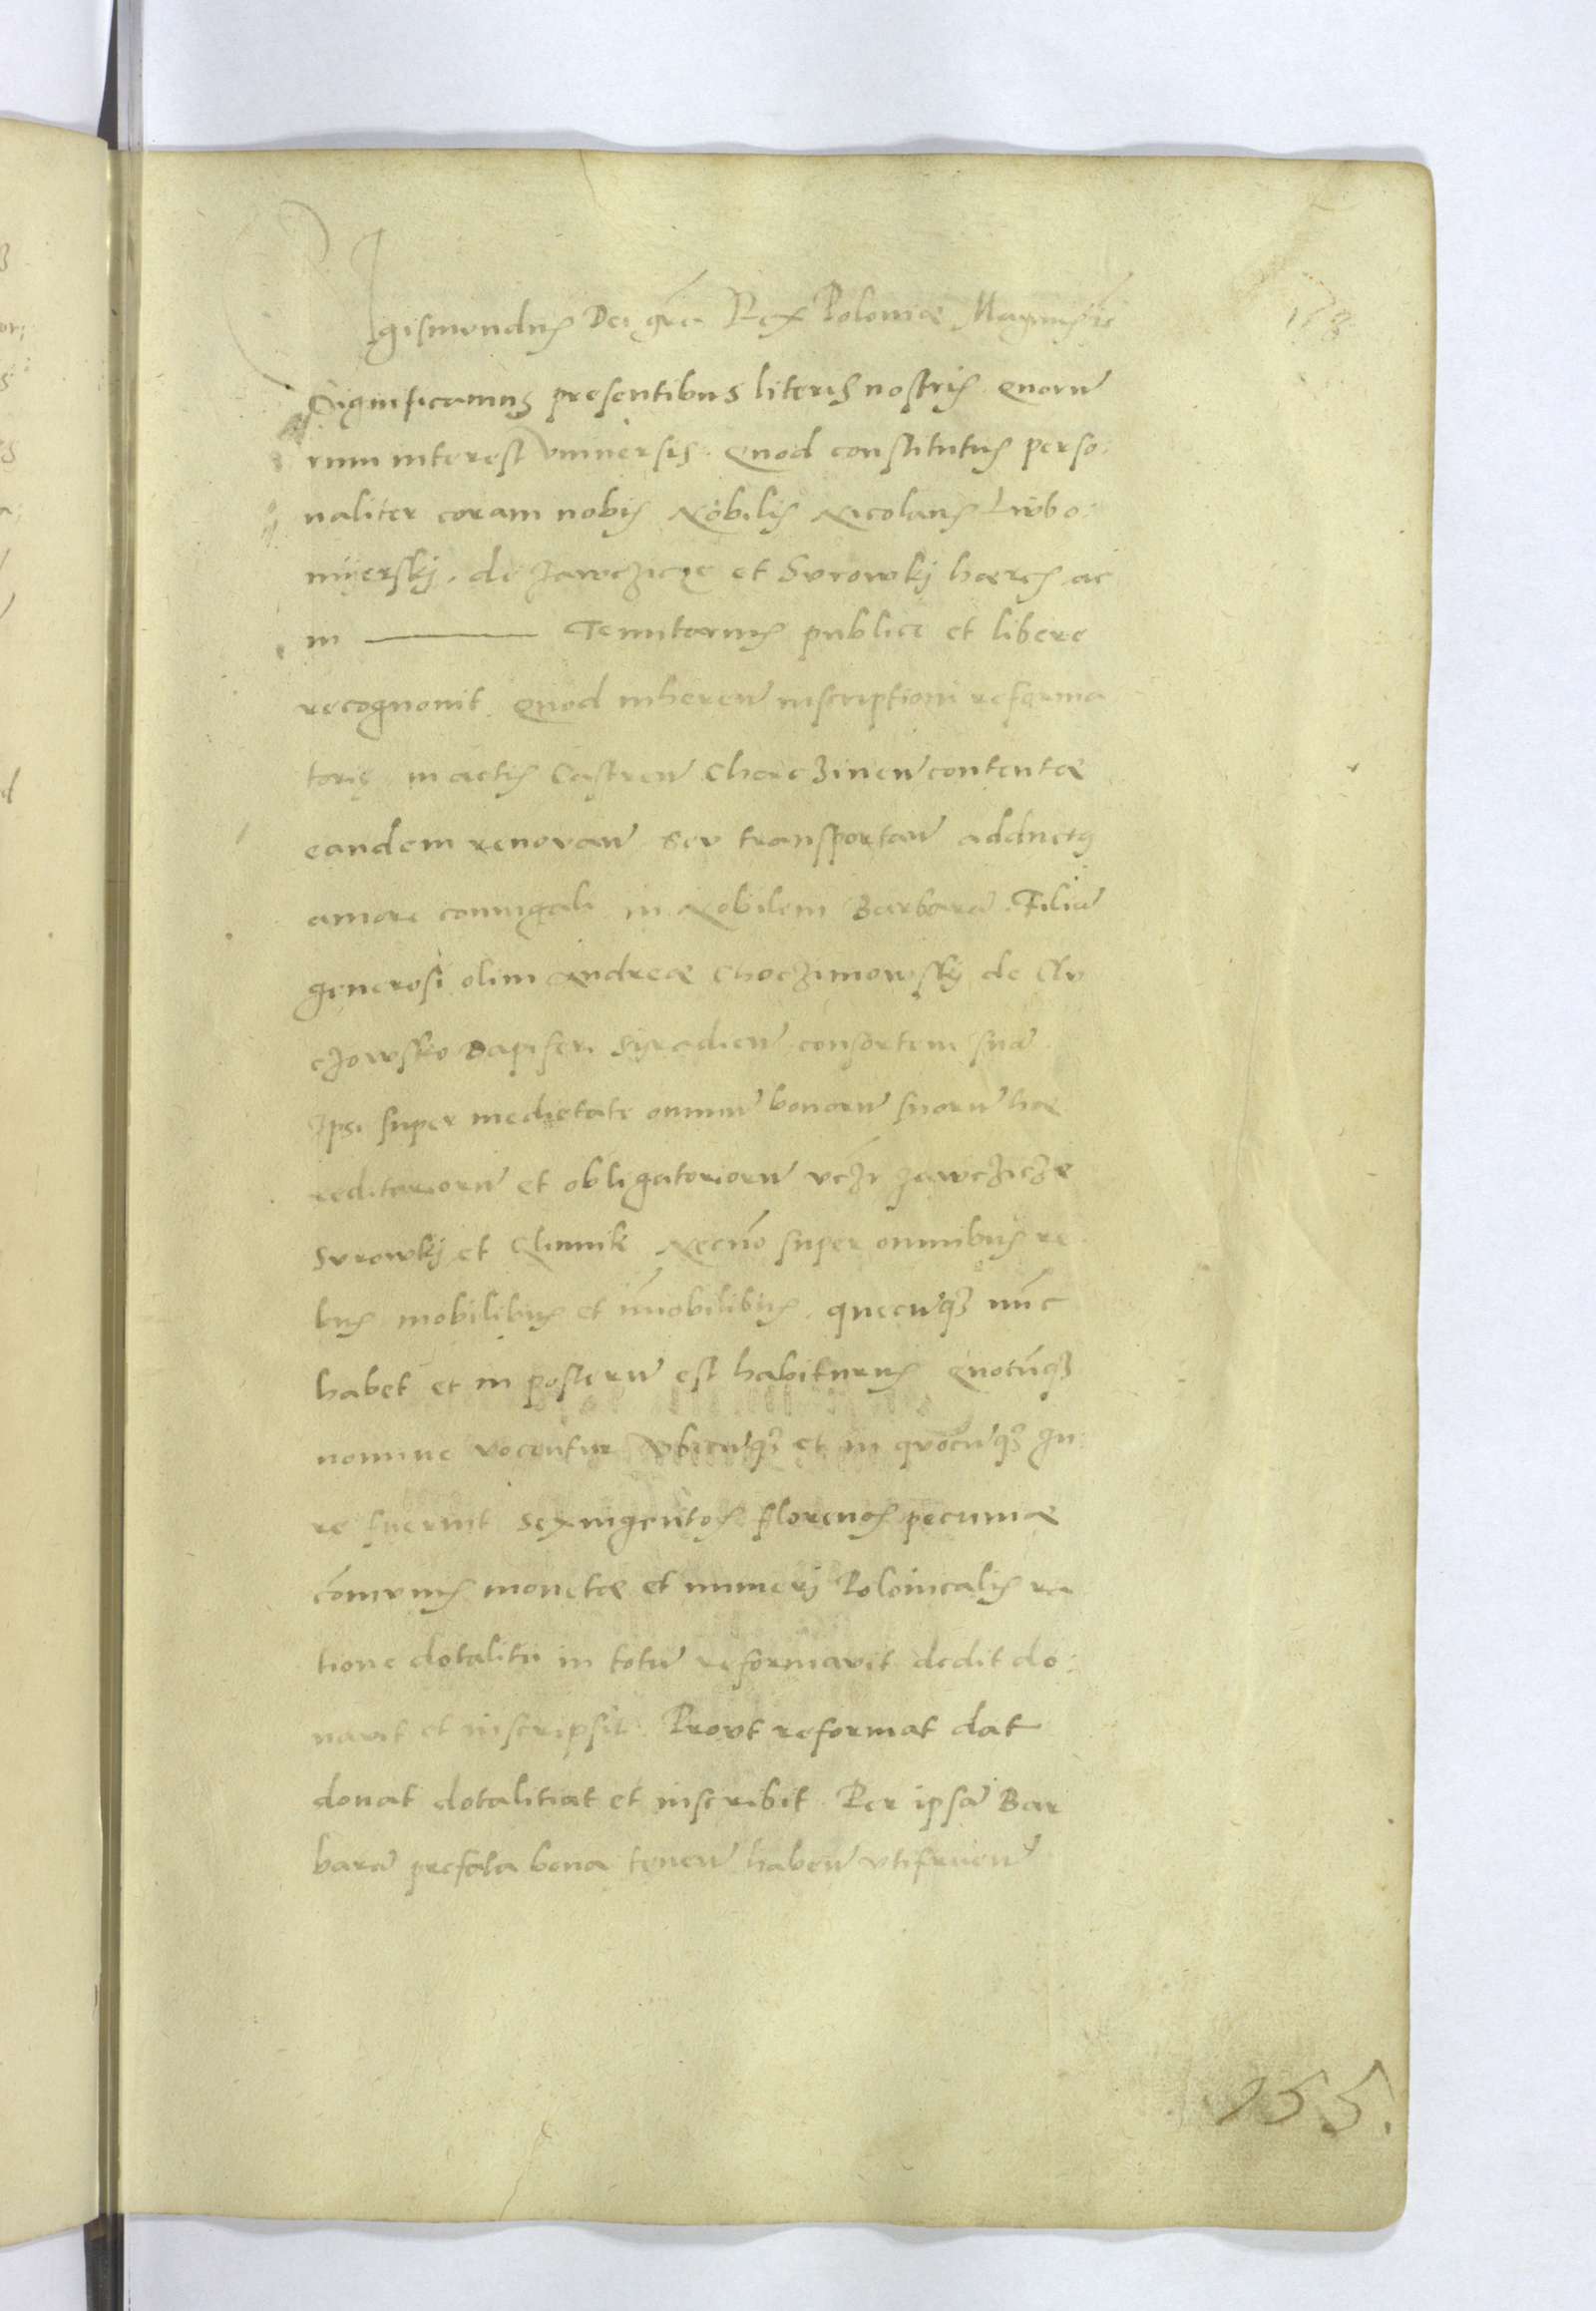 Sigismondus Dei gr̃a Rex Poloniæ Magnus
158
Significamus presentibus literis nostris Quorũ
rum interest vniuersis. Quod constitutus perso:
naliter coram nobis Nobilis Nicolaus Lwbo:
mijerskij. de et Svrowkj hæres ac
in ——— Tenutarius publice et libere
recognouit. Quod inheren̄ inscriptioni reforma
toriæ in actis Castren̄ contentæ
eandem renovan̄ sev transportan̄ adductus
amore coniugali in Nobilem Barbarã Filiã
generosi olim Andreæ Choczimowskij de
czowsko Dapiferi Syradien̄ consortem suã.
Ipsi super medietate omniũ bonorũ suorũ hæ
reditariorũ et obligatoriorũ vczj
Svrowkj et Necnõ super omnibus re
bus mobilibus et im̃obilibus. quecũqȝ nũc
habet et in posterũ est habiturus Quocũqȝ
nomine vocentur Vbicũqȝ et in quocũqȝ Ju
re fuerint Sexingentos florenos pecuniæ
com̃unis monetæ et numerj Polonicalis ra
tione dotalitii in totũ reformavit dedit do:
navit et inscripsit. Provt reformat dat
donat dotalitiat et inscribit. Per ipsã Bar
barã prefata bona tenen̄ haben̄ vtifruen̄
155.